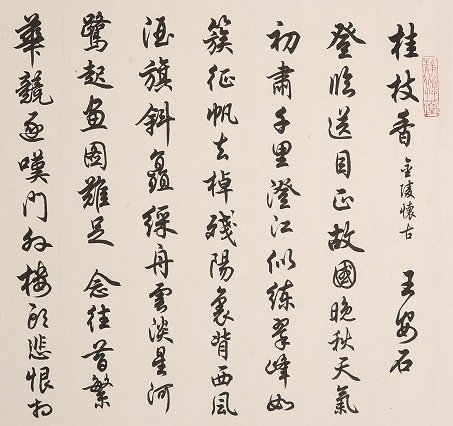 桂枝香 金陵懷古 王安石
登臨送目正故國晚秋天氣
初肅千里澄江似練翠峰如
簇征帆去棹殘陽裏背西風
酒旗斜矗綵舟雲淡星河
鷺起畫圖難足 念往昔繁
華競逐嘆門外樓頭悲恨相